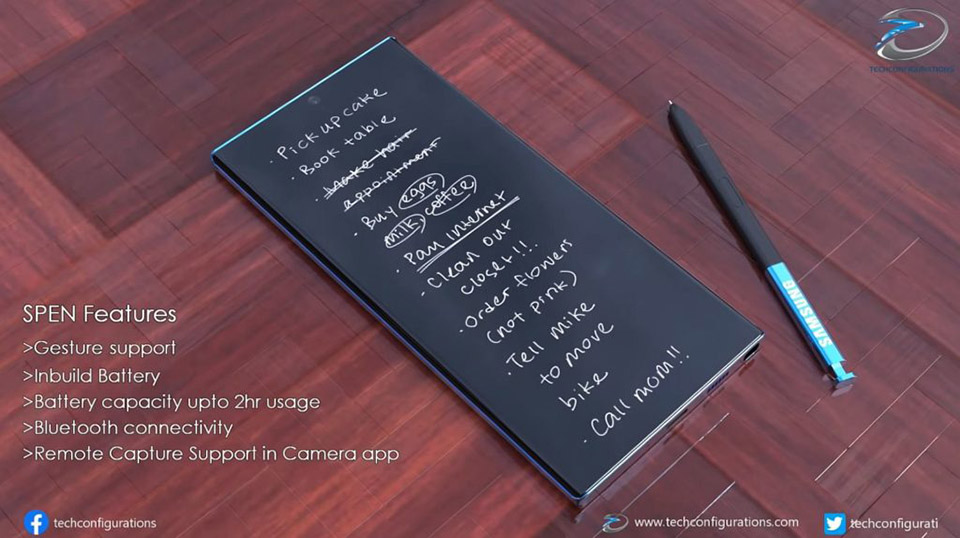 TECHCONFIGURATIONS
· Pick up cake
· Book table
· Make hair
appointment
· Buy eggs
milk, coffee
· Pam Internet
· Clean out
closet!!.
· Order flowers
(not pink)
· Tell Mike
to move
bike
· Call mom!!
SAMSUNG
SPEN Features
>Gesture support
>Inbuild Battery
>Battery capacity upto 2hr usage
>Bluetooth connectivity
>Remote Capture Support in Camera app
techconfigurations
www.techconfigurations.com
techconfigurati